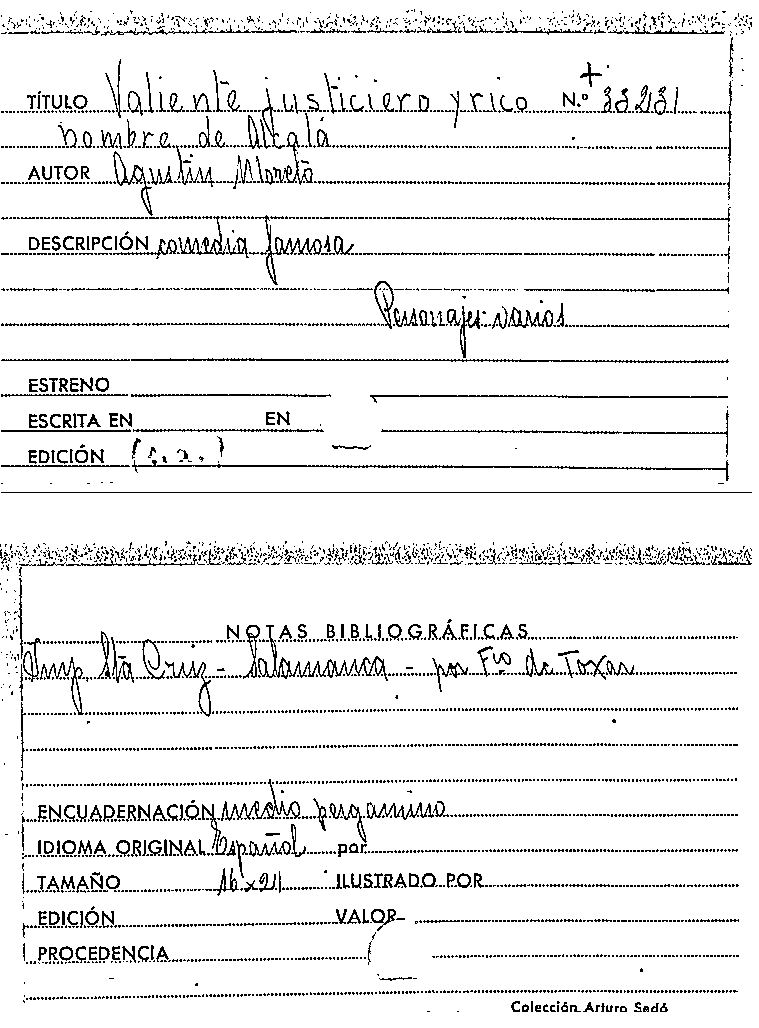 TÍTULO Valiente justiciero y rico N.º + 33231
hombre de Alcalá
AUTOR Agustin Moreto
DESCRIPCIÓN comedia famosa
Personajes varios
ESTRENO
ESCRITA EN EN
EDICIÓN (s.a.)
NOTAS BIBLIOGRÁFICAS
Imp Sta Cruz - Salamanca - por Fco de Toxar
ENCUADERNACIÓN medio pergamino
IDIOMA ORIGINAL Español por
TAMAÑO 16x21 ILUSTRADO POR
EDICIÓN VALOR
PROCEDENCIA
Colección Arturo Sedó